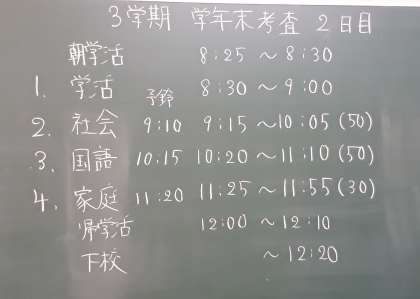 3学期 学年末考査 2日目
朝学活 8:25 〜 8:30
1. 学活 8:30 〜 9:00
予鈴
2. 社会 9:10 9:15 〜10:05 (50)
3. 国語 10:15 10:20 〜11:10 (50)
4. 家庭 11:20 11:25 〜11:55 (30)
帰学活 12:00 〜 12:10
下校 〜 12:20